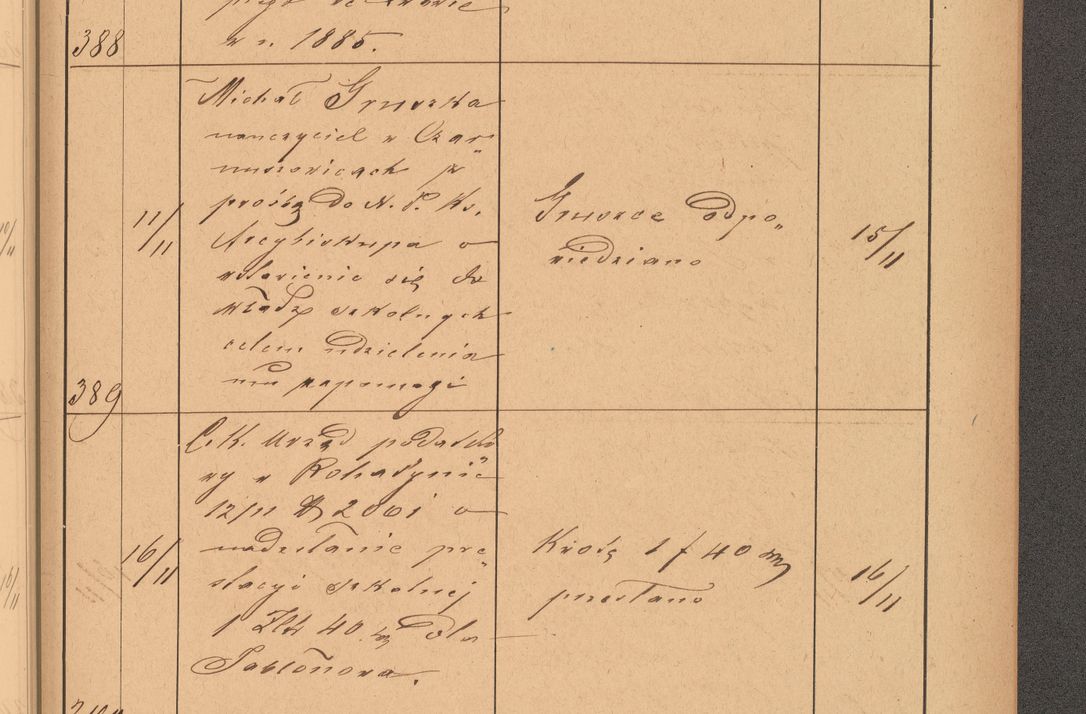 w r. 1885.
388
Michał Gruszka
nauczyciel w Czar„
nuszowicach z
prośbą do N. P. Ks.
Arcybiskupa o
wstawienie się do
władz szkolnych
celem udzielenia
mu zapomogi
11/11
Gruszce odpo„
wiedziano
15/11
389
C. K. Urząd podatko
wy w Rohatynie
12/11 2001 o
nadesłanie pre„
stacyi szkolnej
1 Złr 40 dla
Jabłonowa.
16/11
Kwotę 1 f 40
przesłano
16/11